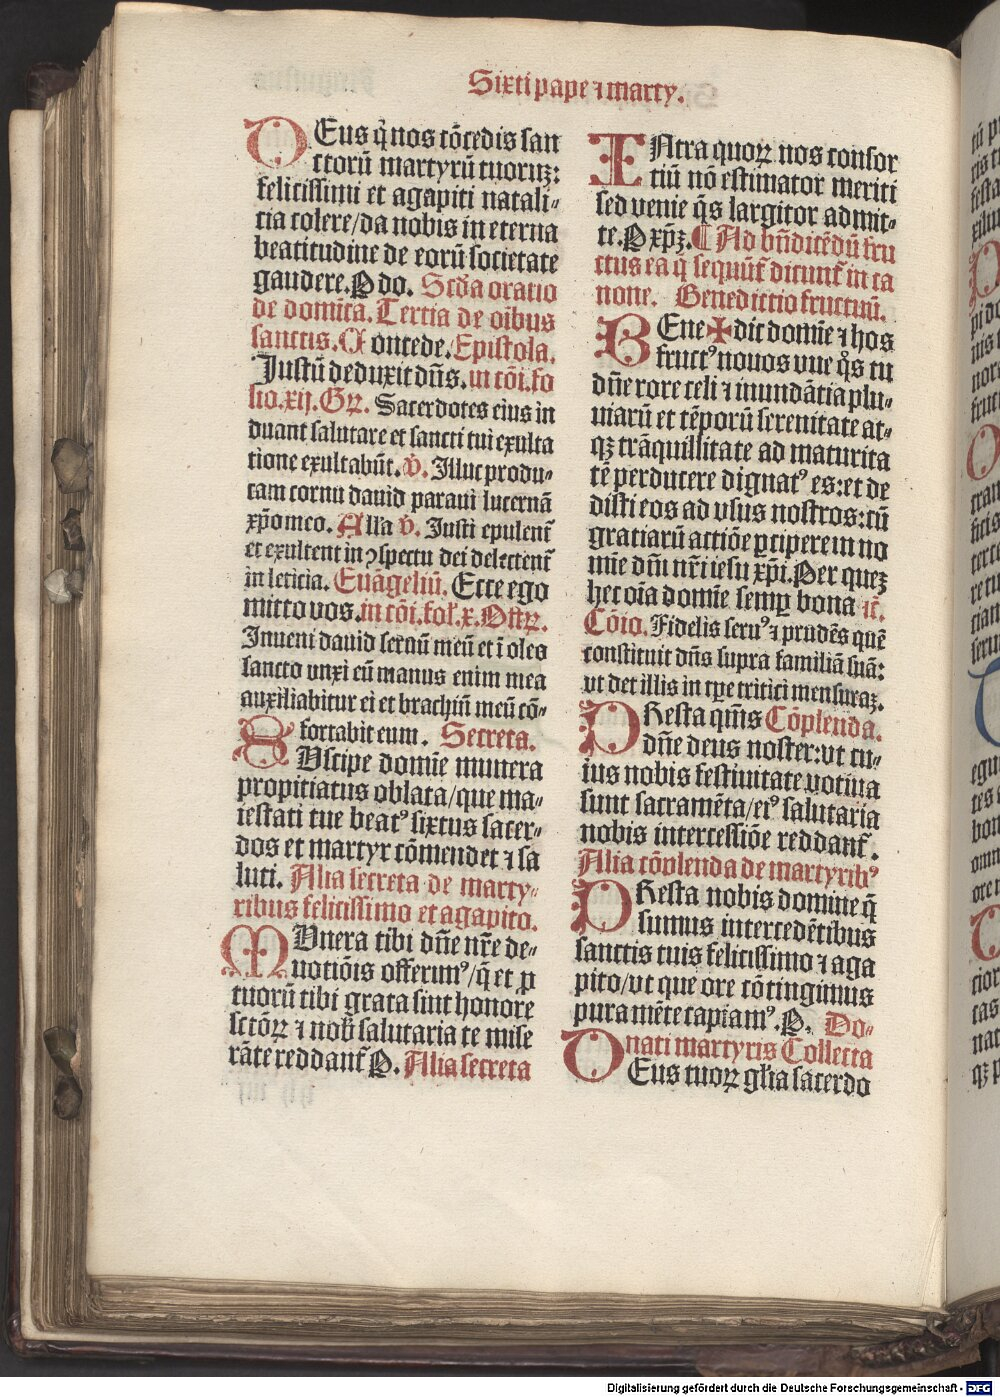 Sixti pape ⁊ marty.
DEus q̃ nos cõcedis san
ctorũ martyrũ tuoruʒ:
felicissimi et agapiti natali-
cia colere/da nobis in eterna
beatitudine de eorũ societate
gaudere. P do. Scďa oratio
de domĩca. Tertia de oĩbus
sanctis. Concede. Epistola.
Justũ deduxit dñs. in cõi. fo
lio. xij. Gꝝ. Sacerdotes eius in
duant salutare et sancti tui exulta
tione exultabũt. v̇. Illuc produ-
cam cornu dauid paraui lucernã
xp̃o meo. Alla v̇. Justi epulent̃
et exultent in ꝯspectu dei delectent̃
in leticia. Euãgeliũ. Ecce ego
mitto vos. in cõi. fol. x. Offꝝ.
Inueni dauid seruũ meũ et ĩ oleo
sancto vnxi eũ manus enim mea
auxiliabitur ei et brachiũ meũ cõ-
fortabit eum. Secreta.
SUscipe domĩe munera
propitiatus oblata/que ma-
iestati tue beatꝰ sixtus sacer-
dos et martyr cõmendet ⁊ sa
luti. Alia secreta de marty-
ribus felicissimo et agapito.
MUnera tibi dñe nr̃e de-
uotiõis offerimꝰ/q̃ et ꝓ
tuorũ tibi grata sint honore
sctõꝝ ⁊ nob̃ salutaria te mise
rãte reddant̃ P. Alia secreta
INtra quoꝝ nos consor
tiũ nõ estimator meriti
sed venie q̃s largitor admit-
te. P xp̃ʒ. ¶ Ad bñdicẽdũ fru
ctus ea q̃ sequũt̃ dicunt̃ in ca
none. Benedictio fructuũ.
BEne✠dic domĩe ⁊ hos
fructꝰ nouos vue q̃s tu
dñe rore celi ⁊ inundãtia plu-
uiarũ et tẽporũ serenitate at-
qʒ trãquillitate ad maturita
tẽ perducere dignatꝰ es: et de
disti eos ad vsus nostros: cũ
gratiarũ actiõe ꝑcipere in no
mĩe dñi nr̃i iesu xp̃i. Per queʒ
hec oĩa domĩe semꝑ bona ⁊c̃.
Cõio. Fidelis seruꝰ ⁊ prudẽs quẽ
constituit dñs supra familiã suã:
vt det illis in tꝑe tritici mensuraʒ.
PResta qm̃s Cõplenda.
dñe deus noster: vt cu-
ius nobis festiuitate votiua
sunt sacramẽta/eiꝰ salutaria
nobis intercessiõe reddant̃.
Alia cõplenda de martyribꝰ
PResta nobis domine q̃
sumus intercedẽtibus
sanctis tuis felicissimo ⁊ aga
pito/vt que ore cõtingimus
pura mẽte capiamꝰ. P. Do-
nati martyris Collecta
DEus tuoꝝ gl̃ia sacerdo
Digitalisierung gefördert durch die Deutsche Forschungsgemeinschaft - DFG